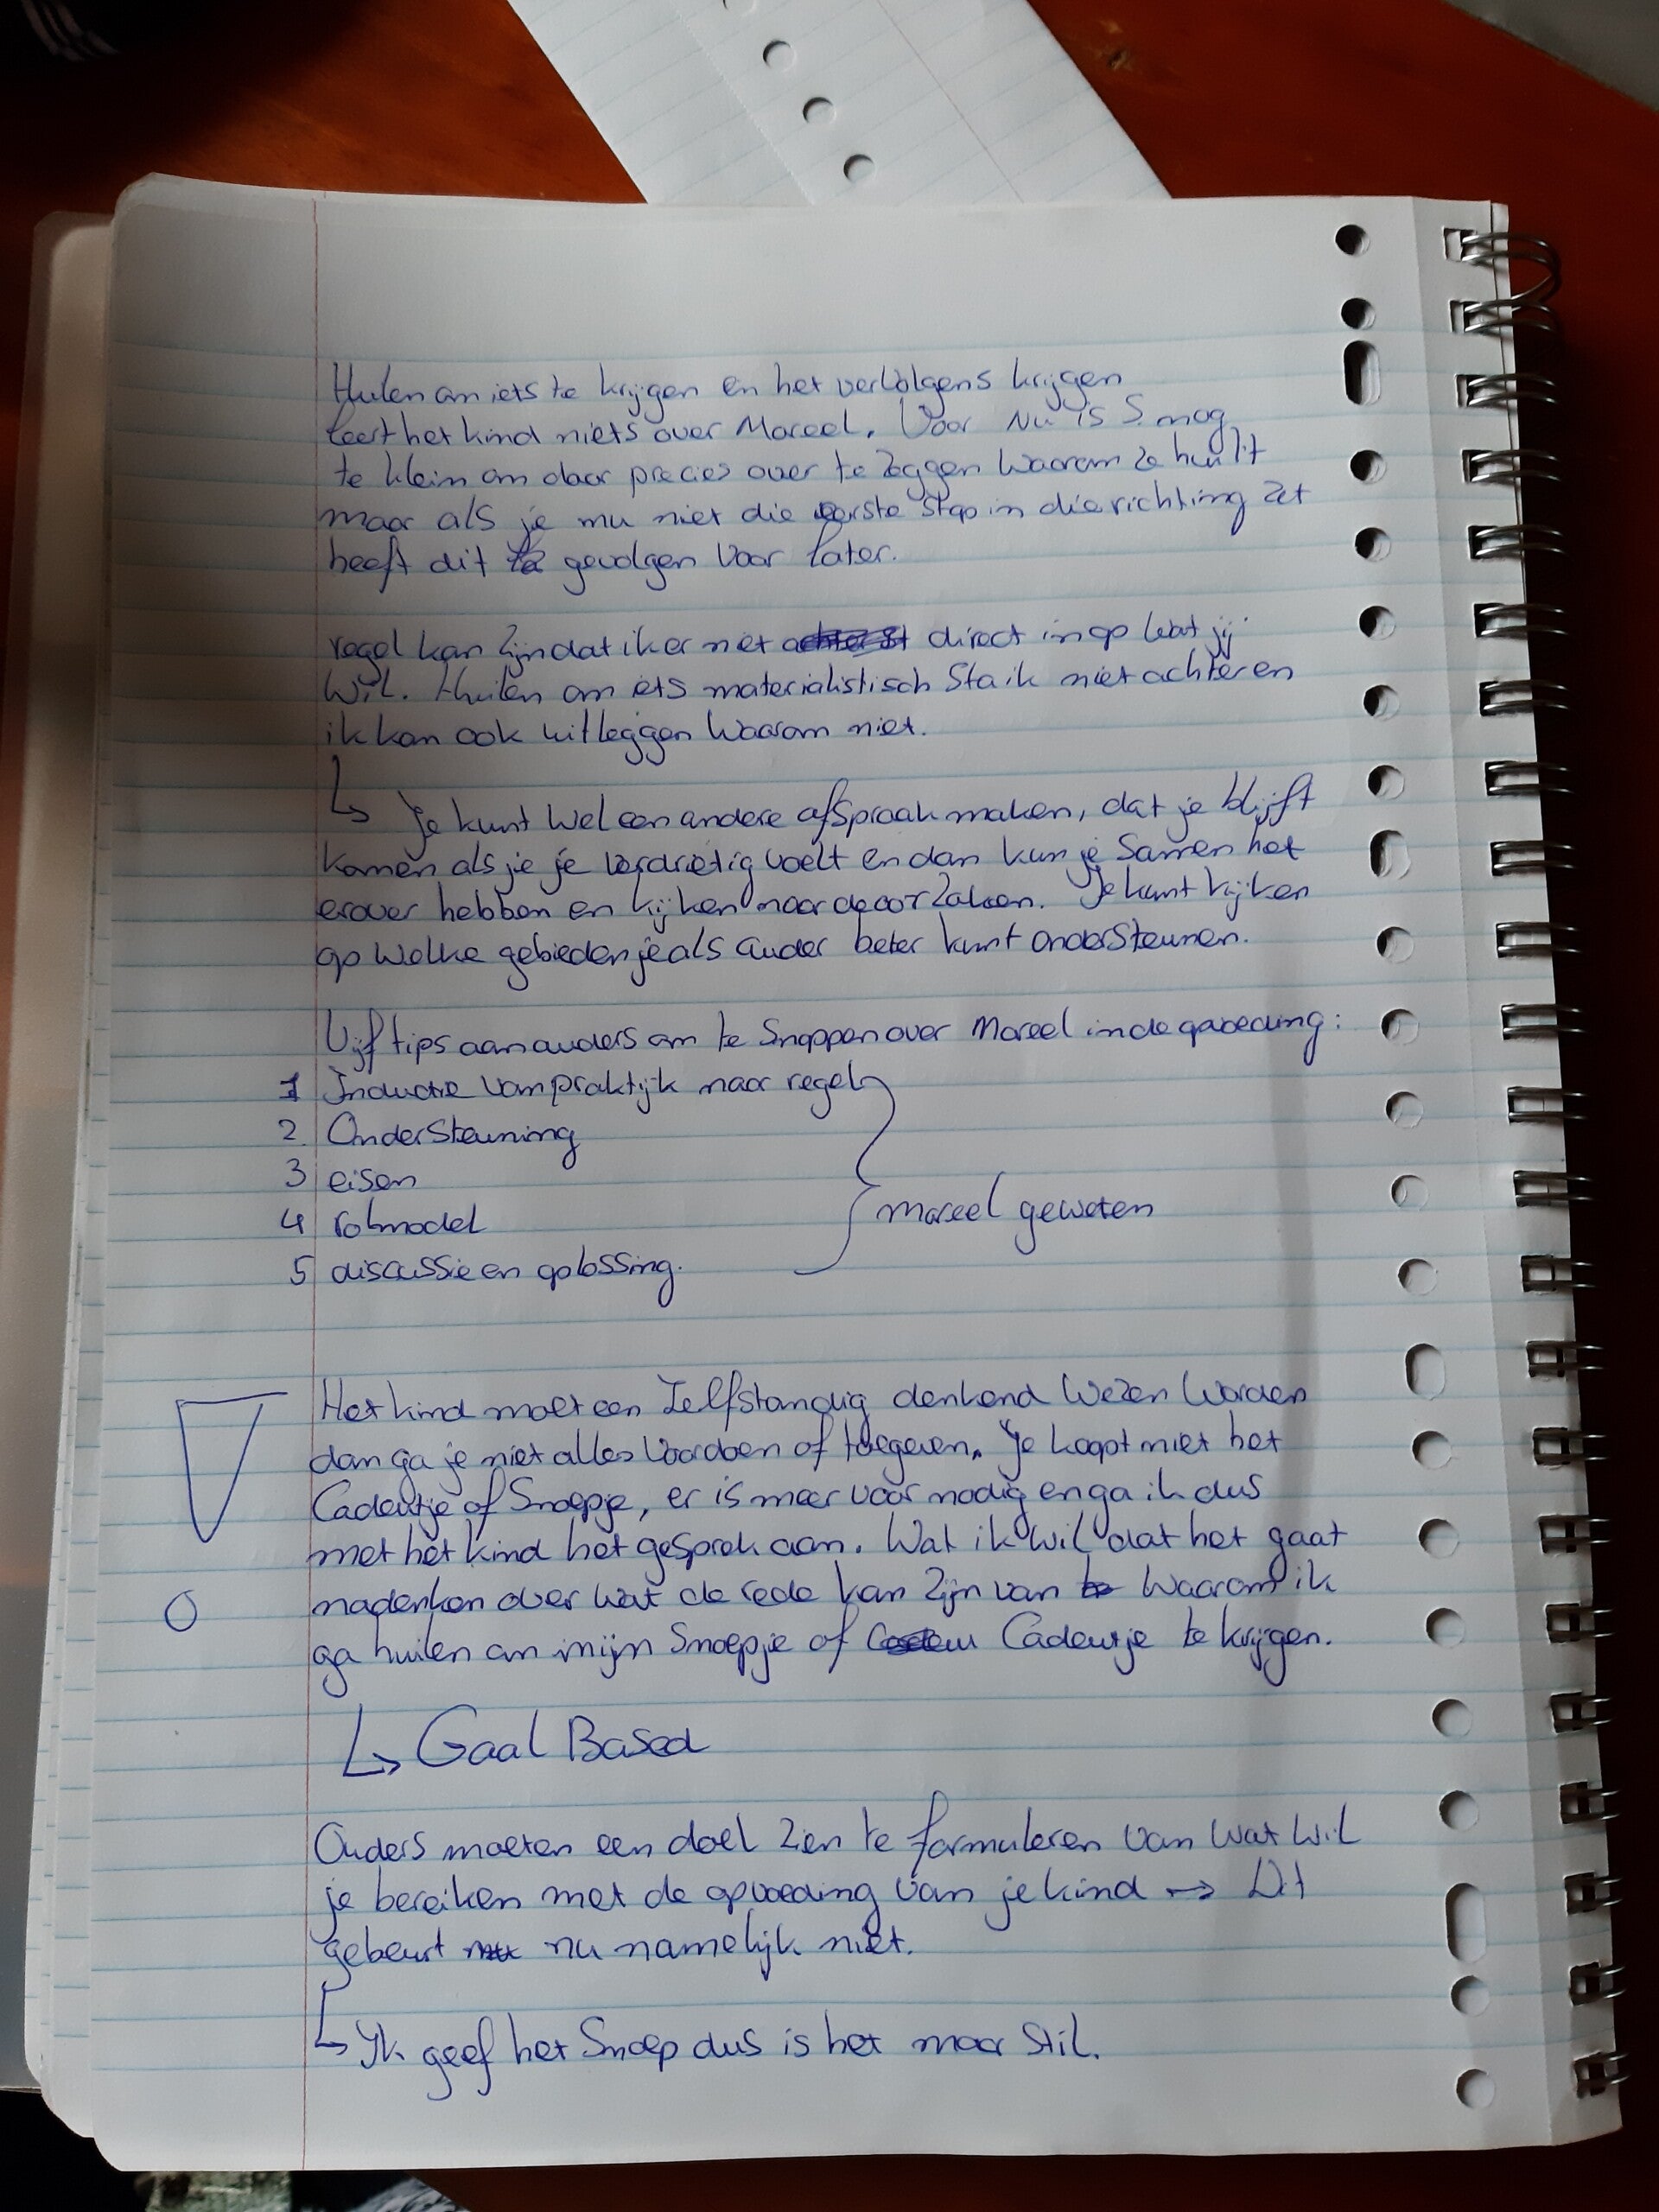 Huilen om iets te krijgen en het vervolgens krijgen
leert het kind niets over Moreel. Voor Nu is S. nog
te klein om daar precies over te zeggen waarom ze huilt
maar als je nu niet die eerste stap in die richting zet
heeft dit gevolgen voor later.
regel kan zijn dat ik er niet direct in op wat jij
wil. Huilen om iets materialistisch sta ik niet achter en
ik kan ook uitleggen waarom niet.
↳ Je kunt wel een andere afspraak maken, dat je blijft
komen als je je verdrietig voelt en dan kun je samen het
erover hebben en kijken naar de oorzaken. Je kunt kijken
op welke gebieden je als ouder beter kunt ondersteunen.
Vijf tips aan ouders om te snappen over Moreel in de opvoeding:
1 Inductie van praktijk naar regel
2. Ondersteuning
3 eisen
4 rolmodel
5 discussie en oplossing.
moreel geweten
Het kind moet een zelfstandig denkend wezen worden
dan ga je niet alles voordoen of toegeven. Je koopt niet het
Cadeutje of Snoepje, er is meer voor nodig en ga ik dus
met het kind het gesprek aan. Wat ik wil dat het gaat
nadenken over wat de rede kan zijn van waarom ik
ga huilen om mijn Snoepje of Cadeutje te krijgen.
↳ Goal Based
Ouders moeten een doel zien te formuleren van wat wil
je bereiken met de opvoeding van je kind → Dit
gebeurt nu namelijk niet.
↳ Ik geef het Snoep dus is het maar stil.